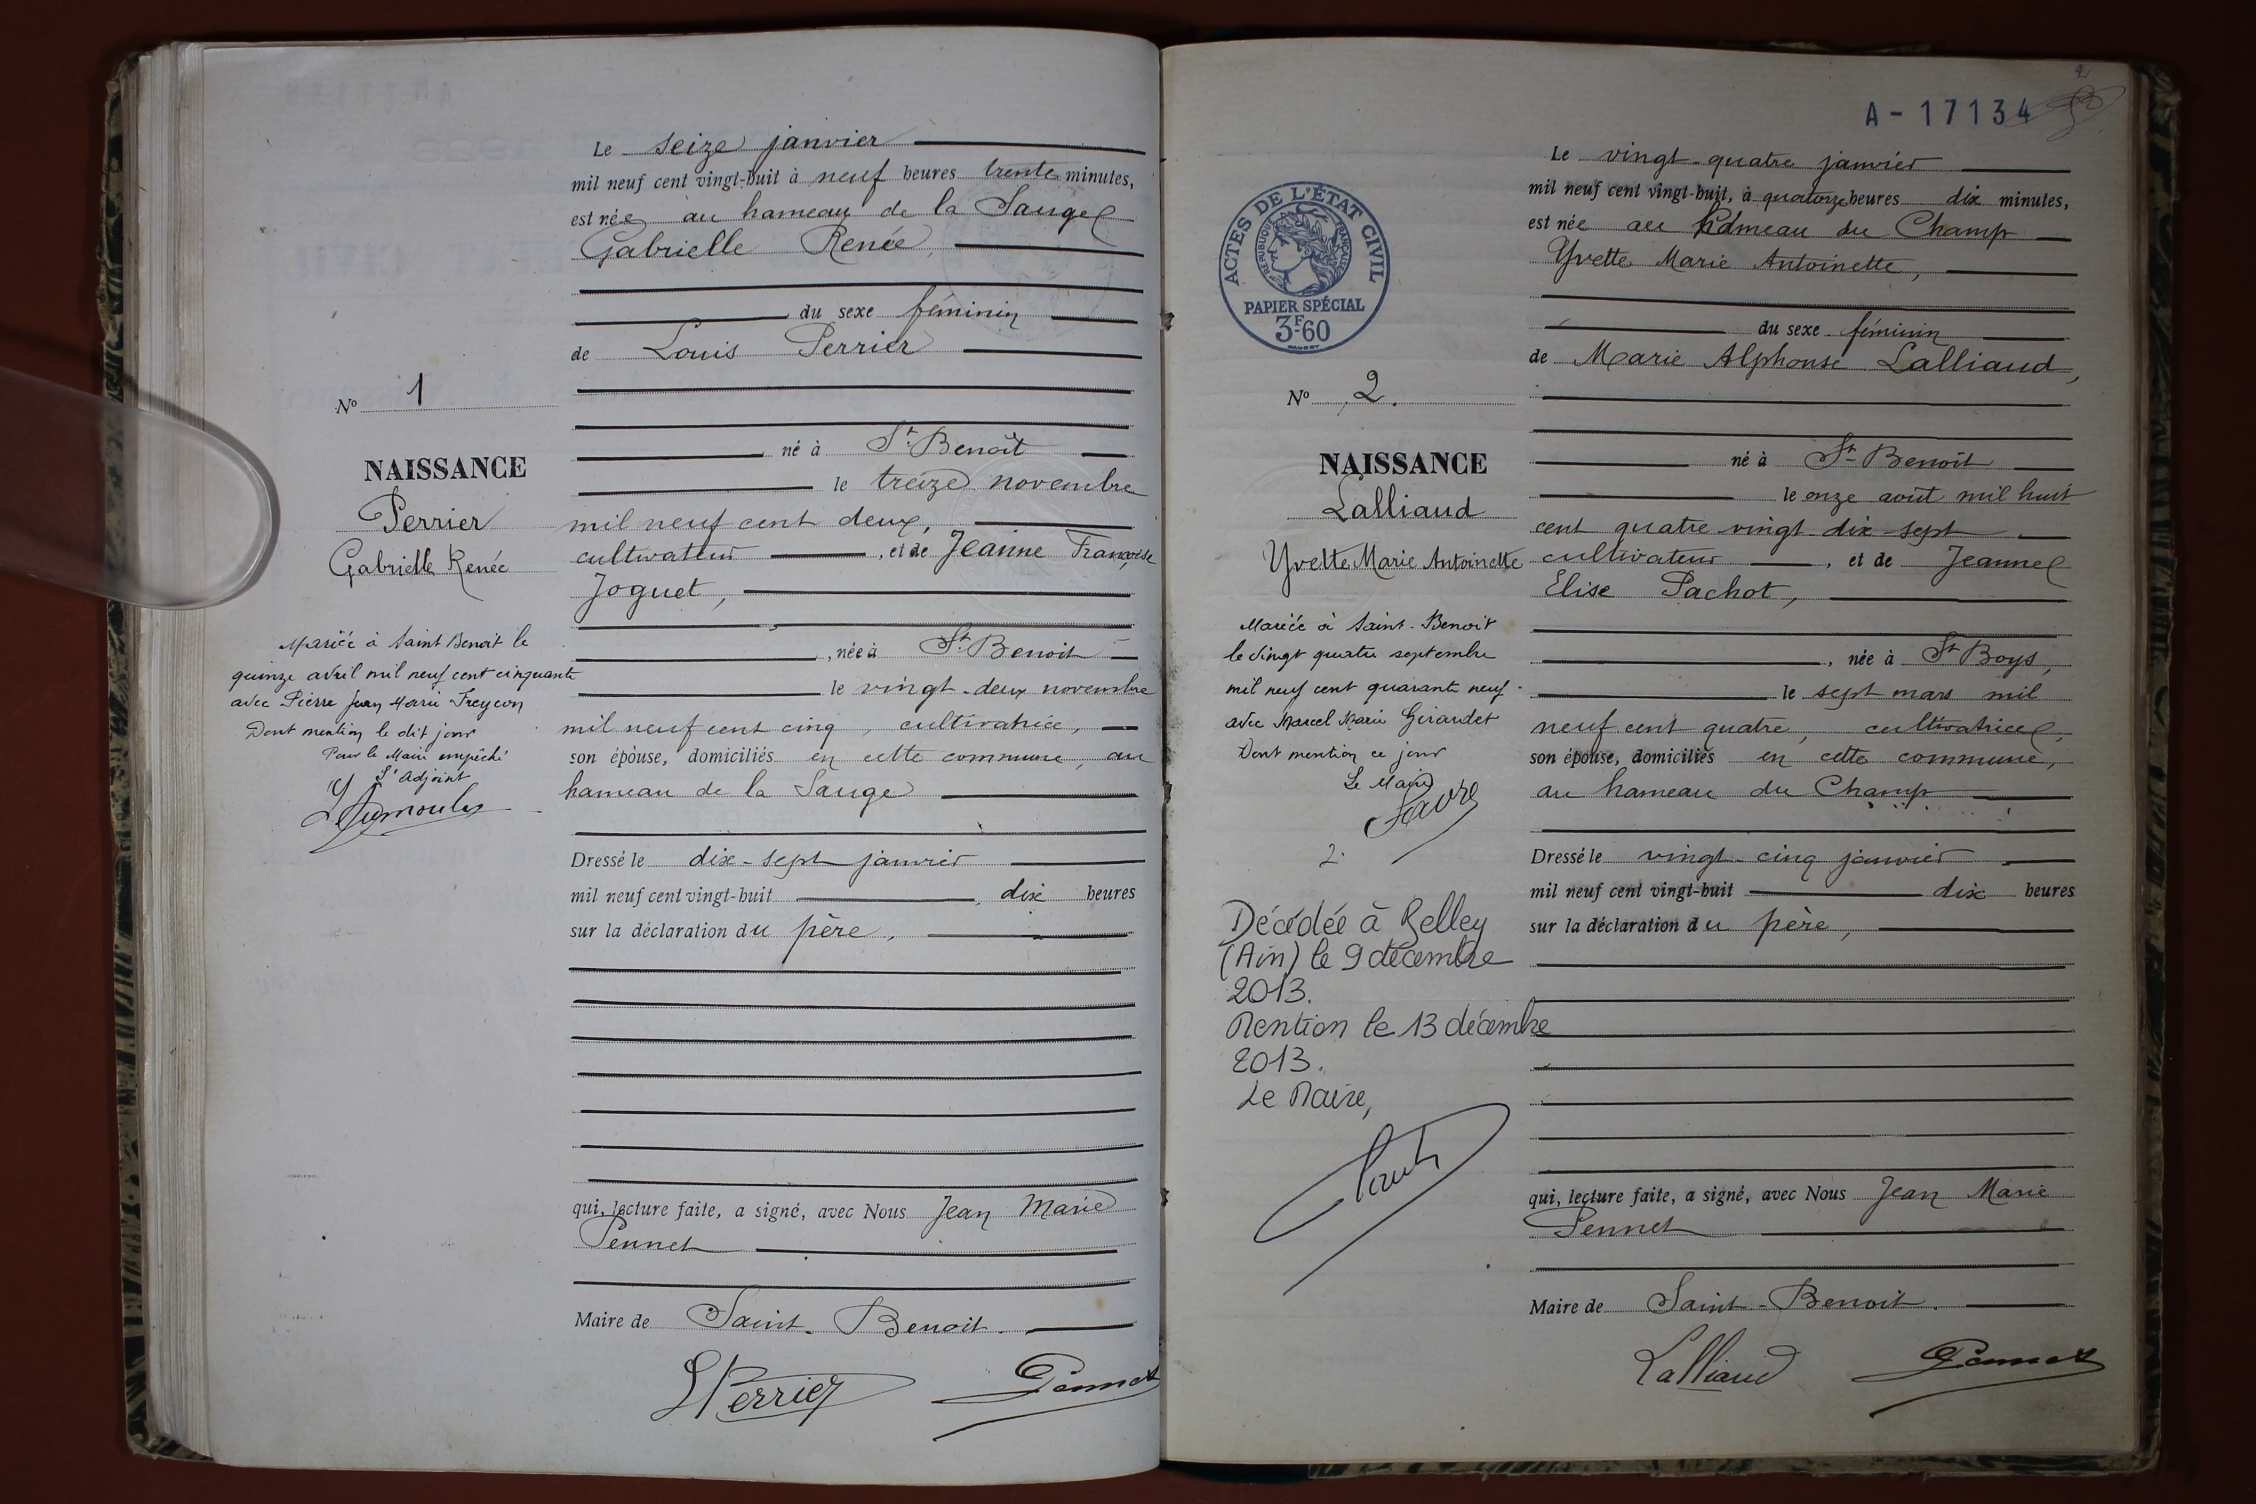 Le seize janvier
mil neuf cent vingt-huit à neuf heures trente minutes,
est née au hameau de la Sauge
Gabrielle Renée
du sexe féminin
de Louis Perrier
No 1
NAISSANCE
Perrier
Gabrielle Renée
né à St Benoît
le treize novembre
mil neuf cent deux,
cultivateur , et de Jeanne Françoise
Joguet,
, née à St Benoit
le vingt-deux novembre
mil neuf cent cinq, cultivatrice,
son épouse, domiciliés en cette commune, au
hameau de la Sauge
Mariée à Saint Benoit le
quinze avril mil neuf cent cinquante
avec Pierre Jean Marie Freycon
Dont mention le dit jour
Pour le Maire empêché
L'adjoint
Dressé le dix-sept janvier
mil neuf cent vingt-huit , dix heures
sur la déclaration du père,
qui, lecture faite, a signé, avec Nous Jean Marie
Pennet
Maire de Saint-Benoit.
LPerrier Pennet
A-17134
2
ACTES DE L'ÉTAT CIVIL
RÉPUBLIQUE FRANÇAISE
PAPIER SPÉCIAL
3F60
Le vingt-quatre janvier
mil neuf cent vingt-huit, à quatorze heures dix minutes,
est née au hameau du Champ
Yvette Marie Antoinette,
du sexe féminin
de Marie Alphonse Lalliaud,
No 2.
NAISSANCE
Lalliaud
Yvette Marie Antoinette
né à St-Benoit
le onze août mil huit
cent quatre-vingt dix-sept
cultivateur , et de Jeanne
Elise Pachot,
, née à St Boys,
le sept mars mil
neuf cent quatre, cultivatrice,
son épouse, domiciliés en cette commune,
au hameau du Champ
Mariée à Saint-Benoit
le vingt quatre septembre
mil neuf cent quarante neuf
avec Marcel Marie Giraudet
Dont mention ce jour
Le Maire
Favre
2.
Décédée à Belley
(Ain) le 9 décembre
2013.
Mention le 13 décembre
2013.
Le Maire,
Dressé le vingt-cinq janvier
mil neuf cent vingt-huit dix heures
sur la déclaration du père,
qui, lecture faite, a signé, avec Nous Jean Marie
Pennet
Maire de Saint-Benoit.
Lalliaud Pennet